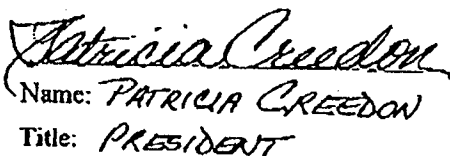 Patricia Creedon
Name: PATRICIA CREEDON
Title: PRESIDENT